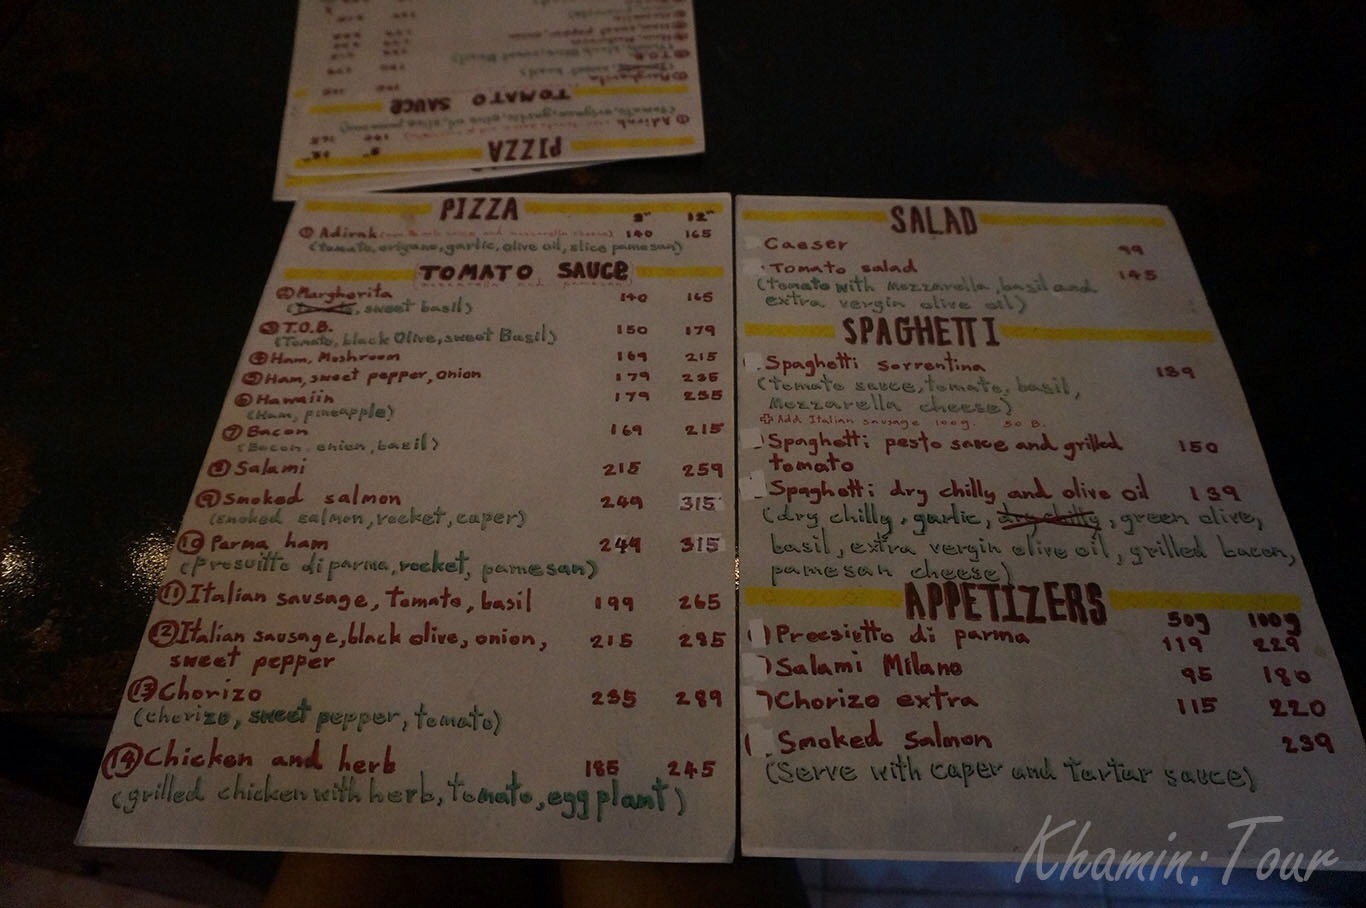 PIZZA
9" 12"
① Adirak 140 165
(tomato, origano, garlic, olive oil, slice pamesan)
TOMATO SAUCE
mozzarella and pamesan
② Margherita 140 165
, sweet basil)
③ T.O.B. 150 179
(Tomato, black Olive, sweet Basil)
④ Ham, Moshroom 169 215
⑤ Ham, sweet pepper, onion 179 235
⑥ Hawaiin 179 235
(Ham, pineapple)
⑦ Bacon 169 215
(Bacon, onion, basil)
⑧ Salami 215 259
⑨ Smoked salmon 249 315
(smoked salmon, rocket, caper)
⑩ Parma ham 249 315
(Presuitto di parma, rocket, pamesan)
⑪ Italian sausage, tomato, basil 199 265
⑫ Italian sausage, black olive, onion, 215 285
sweet pepper
⑬ Chorizo 235 289
(chorizo, sweet pepper, tomato)
⑭ Chicken and herb 185 245
(grilled chicken with herb, tomato, egg plant)
SALAD
Caeser 99
Tomato salad 145
(tomato with Mozzarella, basil and
extra vergin olive oil)
SPAGHETTI
Spaghetti sorrentina 139
(tomato sauce, tomato, basil,
Mozzarella cheese)
Add Italian sausage 100g. 50 B.
Spaghetti pesto sauce and grilled 150
tomato
Spaghetti dry chilly and olive oil 139
(dry chilly, garlic, dry chilly, green olive,
basil, extra vergin olive oil, grilled bacon,
pamesan cheese)
APPETIZERS
50g 100g
Precsietto di parma 119 229
Salami Milano 95 180
Chorizo extra 115 220
Smoked Salmon 239
(Serve with caper and tartar sauce)
PIZZA
9" 12"
① Adirak
TOMATO SAUCE
② Margherita
T.O.B.
Khamin:Tour